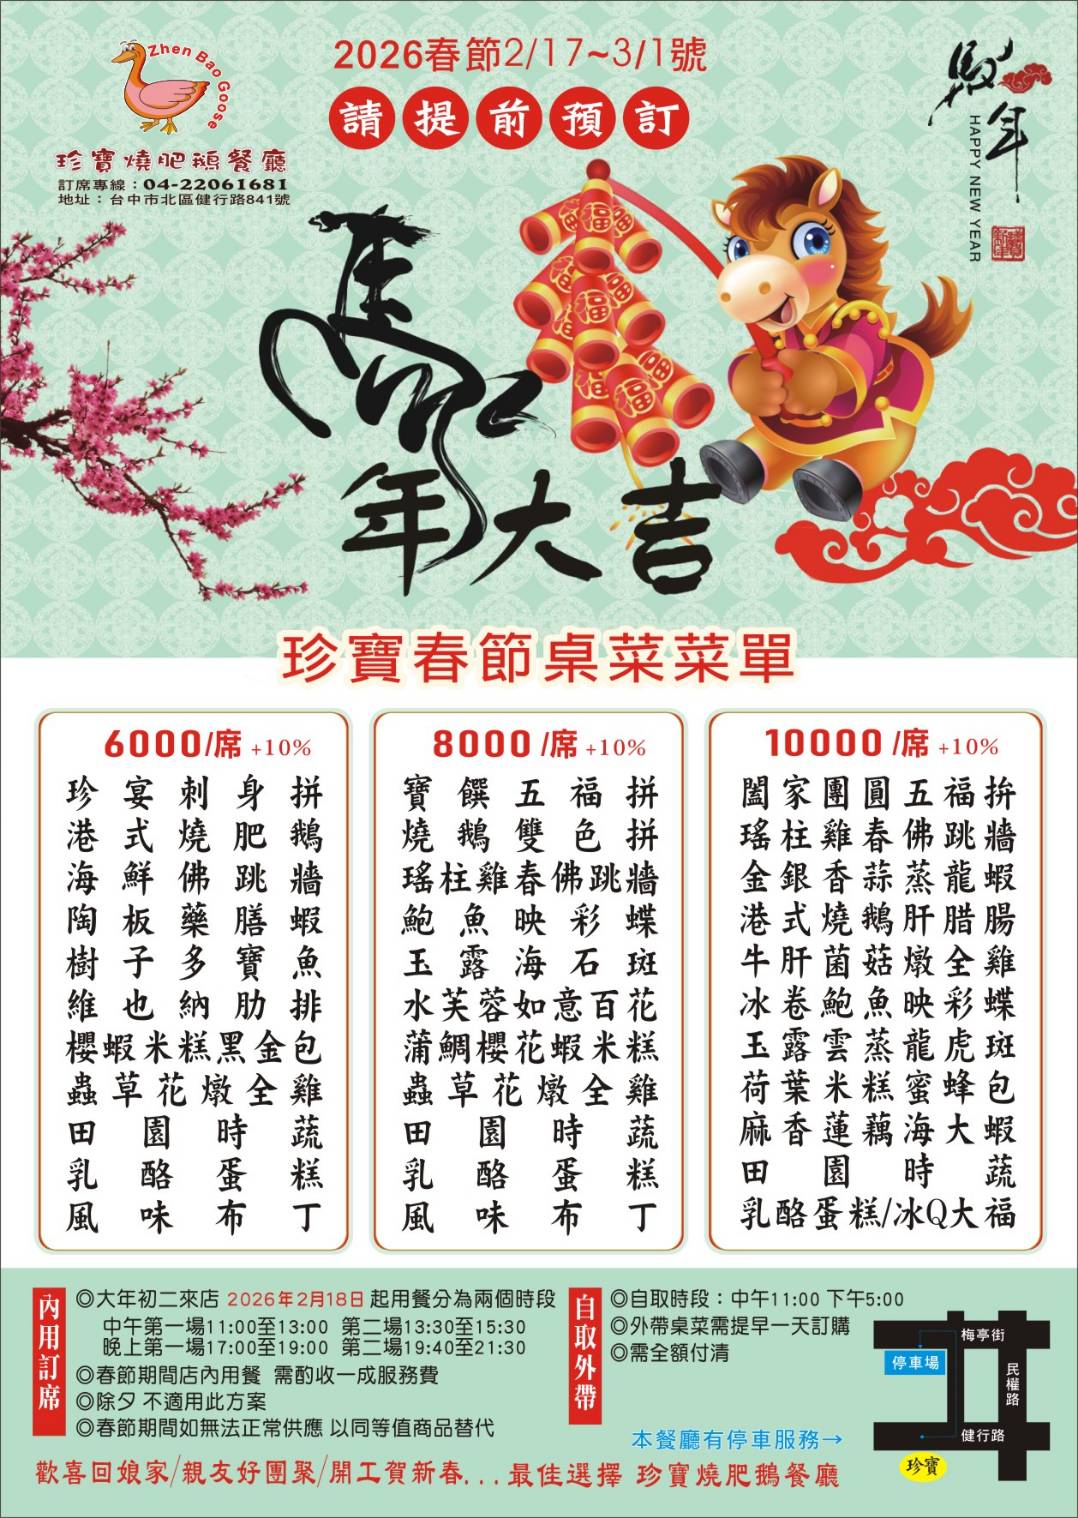 Zhen Bao Goose
珍寶燒肥鵝餐廳
訂席專線：04-22061681
地址：台中市北區健行路841號
2026春節2/17~3/1號
請提前預訂
馬年
HAPPY NEW YEAR
馬年大吉
珍寶春節桌菜菜單
6000/席 +10%
珍宴刺身拼
港式燒肥鵝
海鮮佛跳牆
陶板藥膳蝦
樹子多寶魚
維也納肋排
櫻蝦米糕黑金包
蟲草花燉全雞
田園時蔬
乳酪蛋糕
風味布丁
8000/席 +10%
寶饌五福拼
燒鵝雙色拼
瑤柱雞春佛跳牆
鮑魚映彩蝶
玉露海石斑
水芙蓉如意百花
蒲鯛櫻花蝦米糕
蟲草花燉全雞
田園時蔬
乳酪蛋糕
風味布丁
10000/席 +10%
闔家團圓五福拚
瑤柱雞春佛跳牆
金銀香蒜蒸龍蝦
港式燒鵝肝腊腸
牛肝菌菇燉全雞
冰卷鮑魚映彩蝶
玉露雲蒸龍虎斑
荷葉米糕蜜蜂包
麻香蓮藕海大蝦
田園時蔬
乳酪蛋糕/冰Q大福
內用訂席
◎大年初二來店 2026年2月18日 起用餐分為兩個時段
中午第一場11:00至13:00 第二場13:30至15:30
晚上第一場17:00至19:00 第二場19:40至21:30
◎春節期間店內用餐 需酌收一成服務費
◎除夕 不適用此方案
◎春節期間如無法正常供應 以同等值商品替代
自取外帶
◎自取時段：中午11:00 下午5:00
◎外帶桌菜需提早一天訂購
◎需全額付清
本餐廳有停車服務→
梅亭街
停車場
民權路
健行路
珍寶
歡喜回娘家/親友好團聚/開工賀新春...最佳選擇 珍寶燒肥鵝餐廳